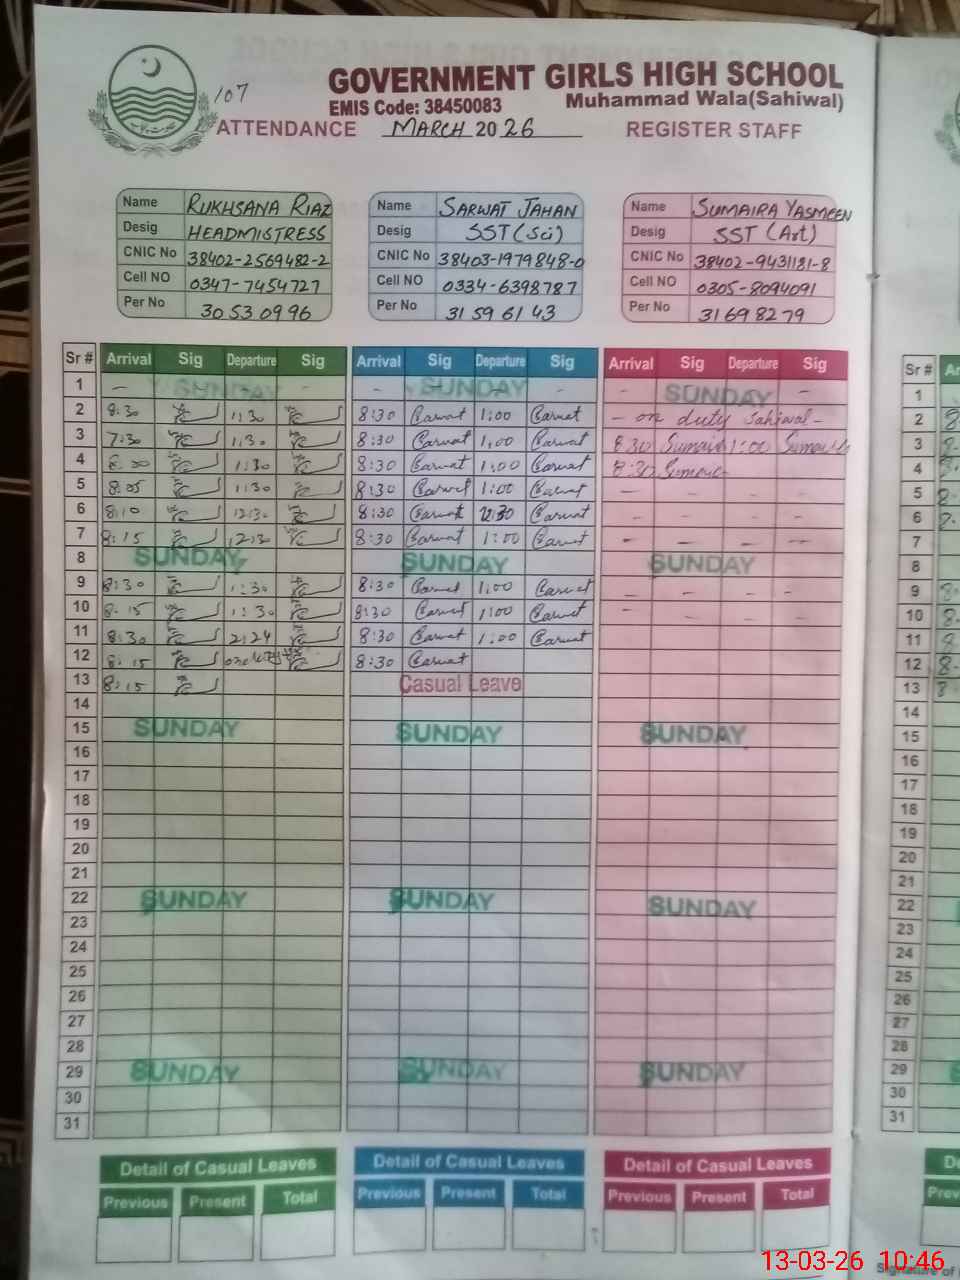 GOVERNMENT GIRLS HIGH SCHOOL
107
EMIS Code: 38450083 Muhammad Wala(Sahiwal)
ATTENDANCE MARCH 2026 REGISTER STAFF
Name RUKHSANA RIAZ Name SARWAT JAHAN Name SUMAIRA YASMEEN
Desig HEADMISTRESS Desig SST (Sci) Desig SST (Art)
CNIC No 38402-2569482-2 CNIC No 38403-1979848-0 CNIC No 38402-9431181-8
Cell NO 0347-7454727 Cell NO 0334-6398787 Cell NO 0305-8094091
Per No 30530996 Per No 31596143 Per No 31698279
Sr # Arrival Sig Departure Sig Arrival Sig Departure Sig Arrival Sig Departure Sig Sr #
1 - SUNDAY - SUNDAY - - SUNDAY - 1
2 8:30 1:30 8:30 Sarwat 1:00 Sarwat - on duty Sahiwal - 2
3 7:30 1:30 8:30 Sarwat 1:00 Sarwat 8:30 Sumaira 1:00 Sumaira 3
4 1:30 8:30 Sarwat 1:00 Sarwat 8:30 Sumaira 4
5 8:05 1:30 8:30 Sarwat 1:00 Sarwat - - - - 5
6 8:10 12:30 8:30 Sarwat 12:30 Sarwat - - - - 6
7 8:15 12:30 8:30 Sarwat 1:00 Sarwat - - - - 7
8 SUNDAY SUNDAY SUNDAY 8
9 8:30 1:30 8:30 Sarwat 1:00 Sarwat - - - - 9
10 8:15 1:30 8:30 Sarwat 1:00 Sarwat - - - - 10
11 8:30 2:24 8:30 Sarwat 1:00 Sarwat 11
12 8:15 8:30 Sarwat 12
13 8:15 Casual Leave 13
14 14
15 SUNDAY SUNDAY SUNDAY 15
16 16
17 17
18 18
19 19
20 20
21 21
22 SUNDAY SUNDAY SUNDAY 22
23 23
24 24
25 25
26 26
27 27
28 28
29 SUNDAY SUNDAY SUNDAY 29
30 30
31 31
Detail of Casual Leaves Detail of Casual Leaves Detail of Casual Leaves
Previous Present Total Previous Present Total Previous Present Total
13-03-26 10:46
Signature of